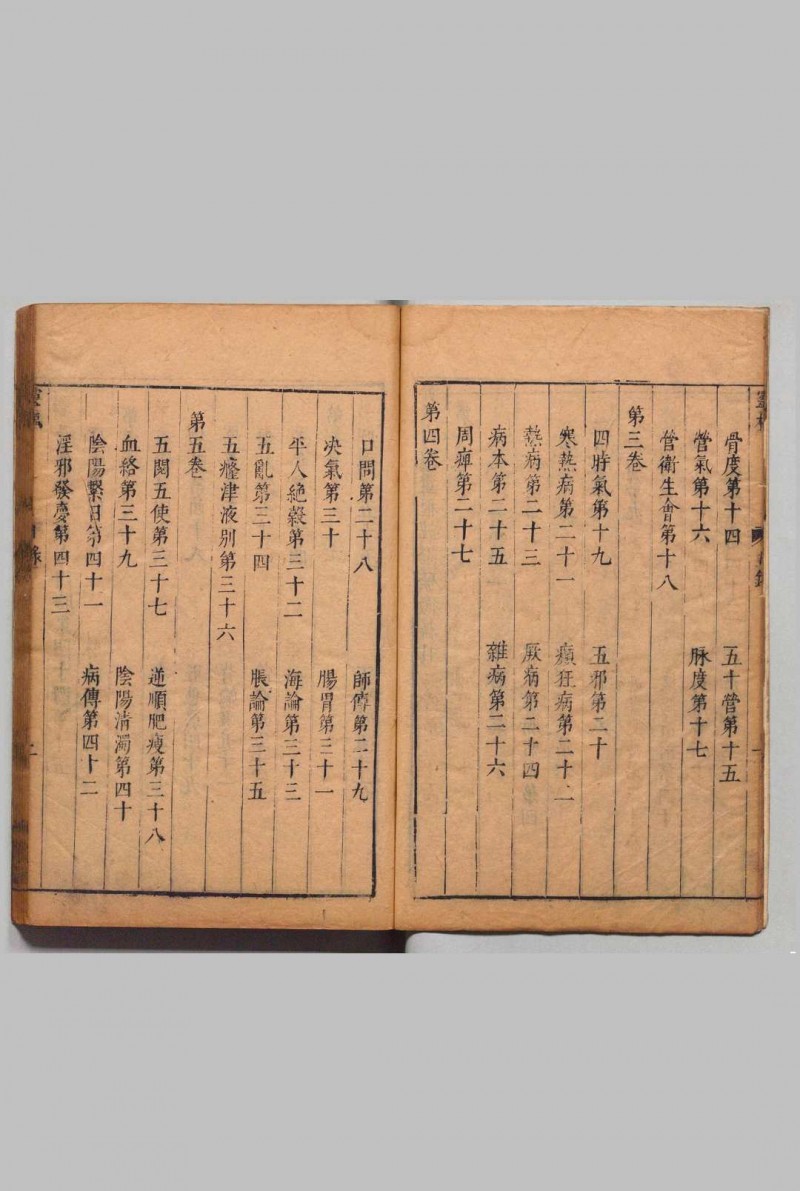 骨度第十四　五十營第十五
營氣第十六　脉度第十七
營衛生會第十八
第三卷
四時氣第十九　五邪第二十
寒熱病第二十一　癲狂病第二十二
熱病第二十三　厥病第二十四
病本第二十五　雜病第二十六
周痺第二十七
第四卷
口問第二十八　師傳第二十九
决氣第三十　腸胃第三十一
平人絶穀第三十二　海論第三十三
五亂第三十四　脹論第三十五
五癃津液别第三十六
第五卷
五閱五使第三十七　逆順肥瘦第三十八
血絡第三十九　陰陽清濁第四十
陰陽繫日第四十一　病傳第四十二
淫邪發夢第四十三